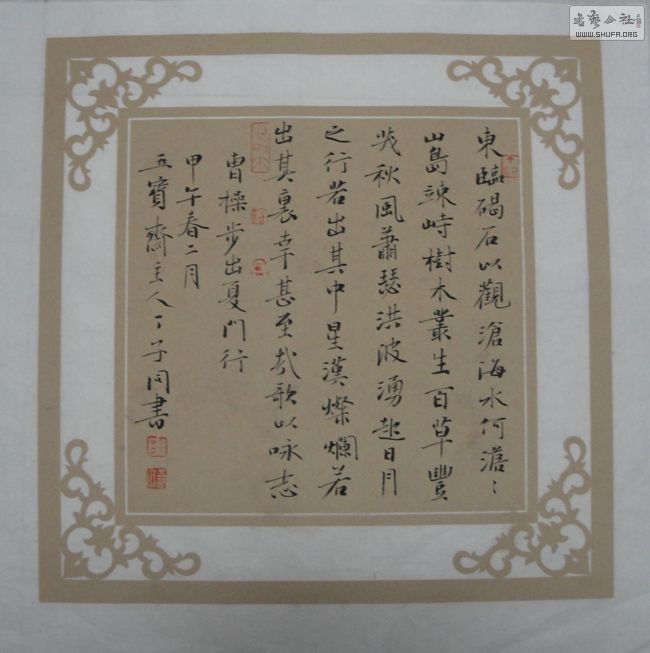 東臨碣石以觀滄海水何澹〻
山島竦峙樹木叢生百草豐
茂秋風蕭瑟洪波湧起日月
之行若出其中星漢燦爛若
出其裏幸甚至哉歌以咏志
曹操步出夏門行
甲午春二月
五寶齋主人丁子同書
書藝公社
WWW.SHUFA.ORG